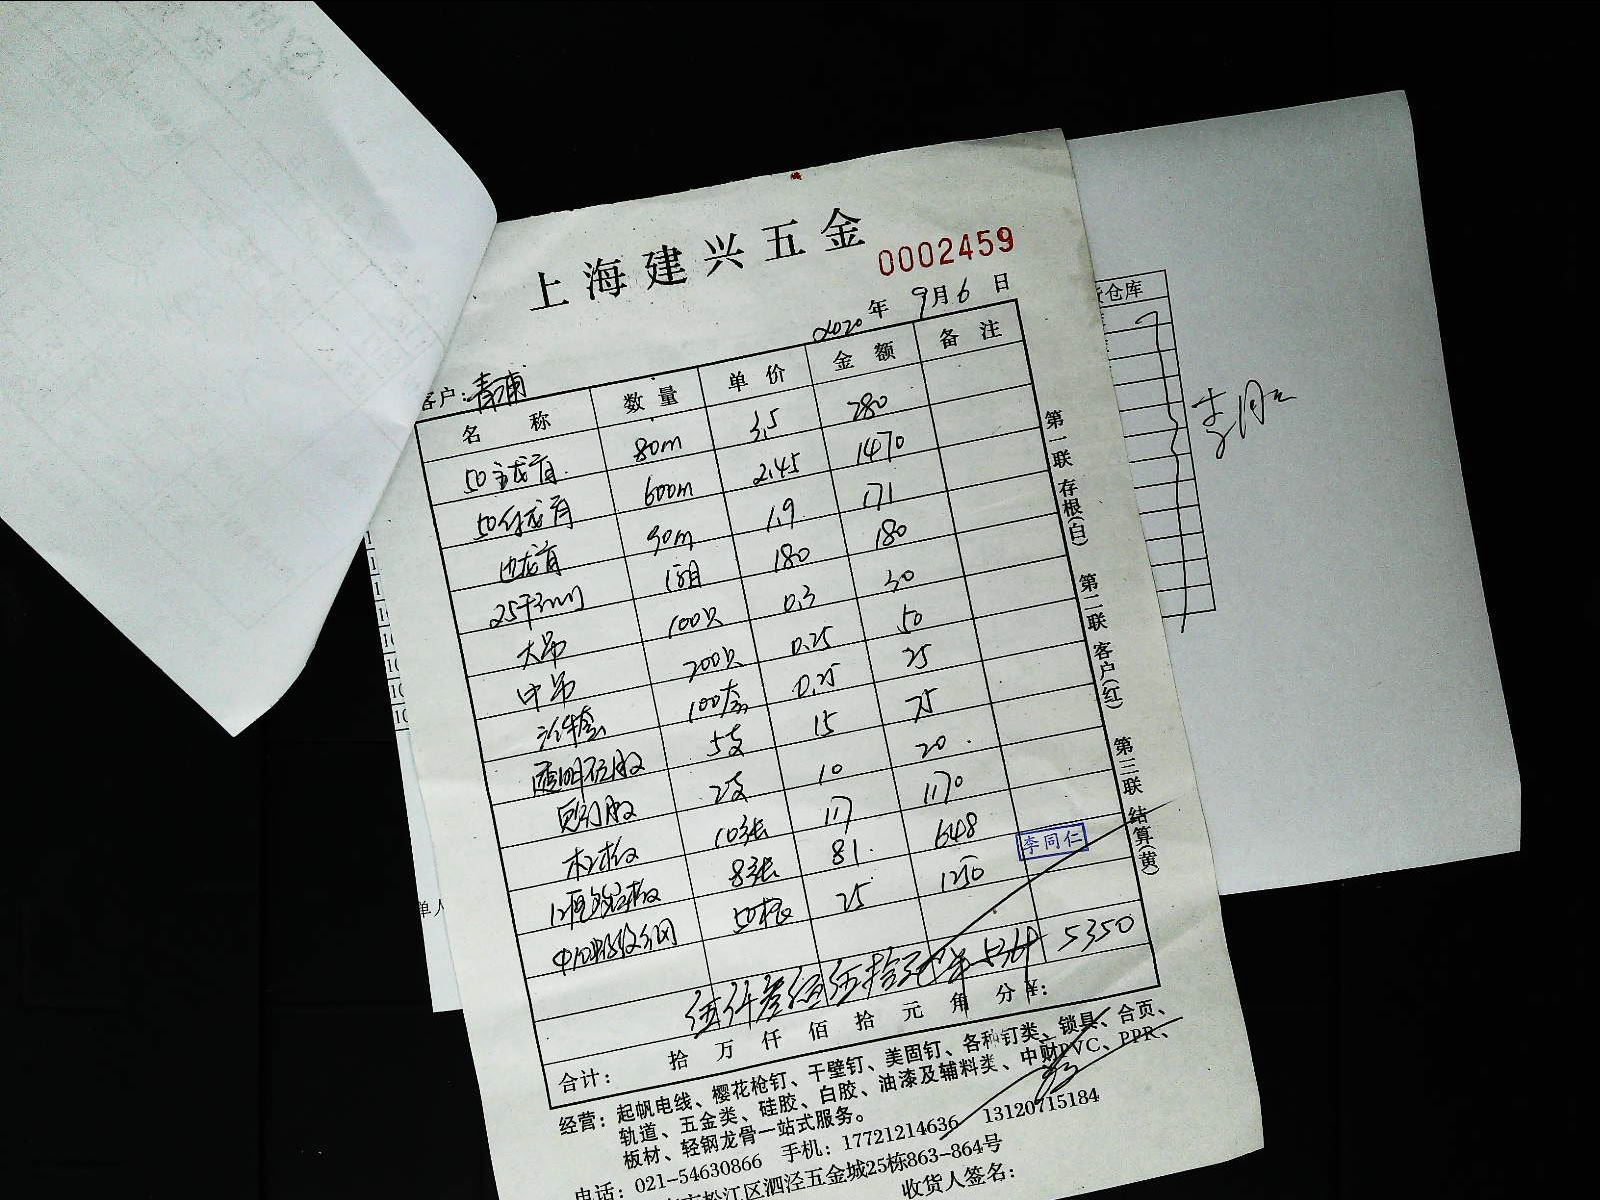 上海建兴五金
0002459
2020年 9月6日
客户：青浦
名称 数量 单价 金额 备注
50主龙骨 80m 3.5 280
50付龙骨 600m 2.45 1470
边龙骨 90m 1.9 171
25干 1箱 180 180
大吊 100只 0.3 30
中吊 200只 0.25 50
100套 0.25 25
透明石胶 5支 15 75
免钉胶 2支 10 20
10张 117 1170
8张 81 648
50根 25 1250
伍仟叁佰伍拾元 5369 5350
合计： 拾 万 仟 佰 拾 元 角 分 ¥:
李同仁
第一联 存根(白) 第二联 客户(红) 第三联 结算(黄)
经营：起帆电线、樱花枪钉、干壁钉、美固钉、各种钉类、锁具、合页、
轨道、五金类、硅胶、白胶、油漆及辅料类、中财PVC、PPR、
板材、轻钢龙骨一站式服务。
电话：021-54630866 手机：17721214636 13120715184
松江区泗泾五金城25栋863-864号
收货人签名：
仓库
单人